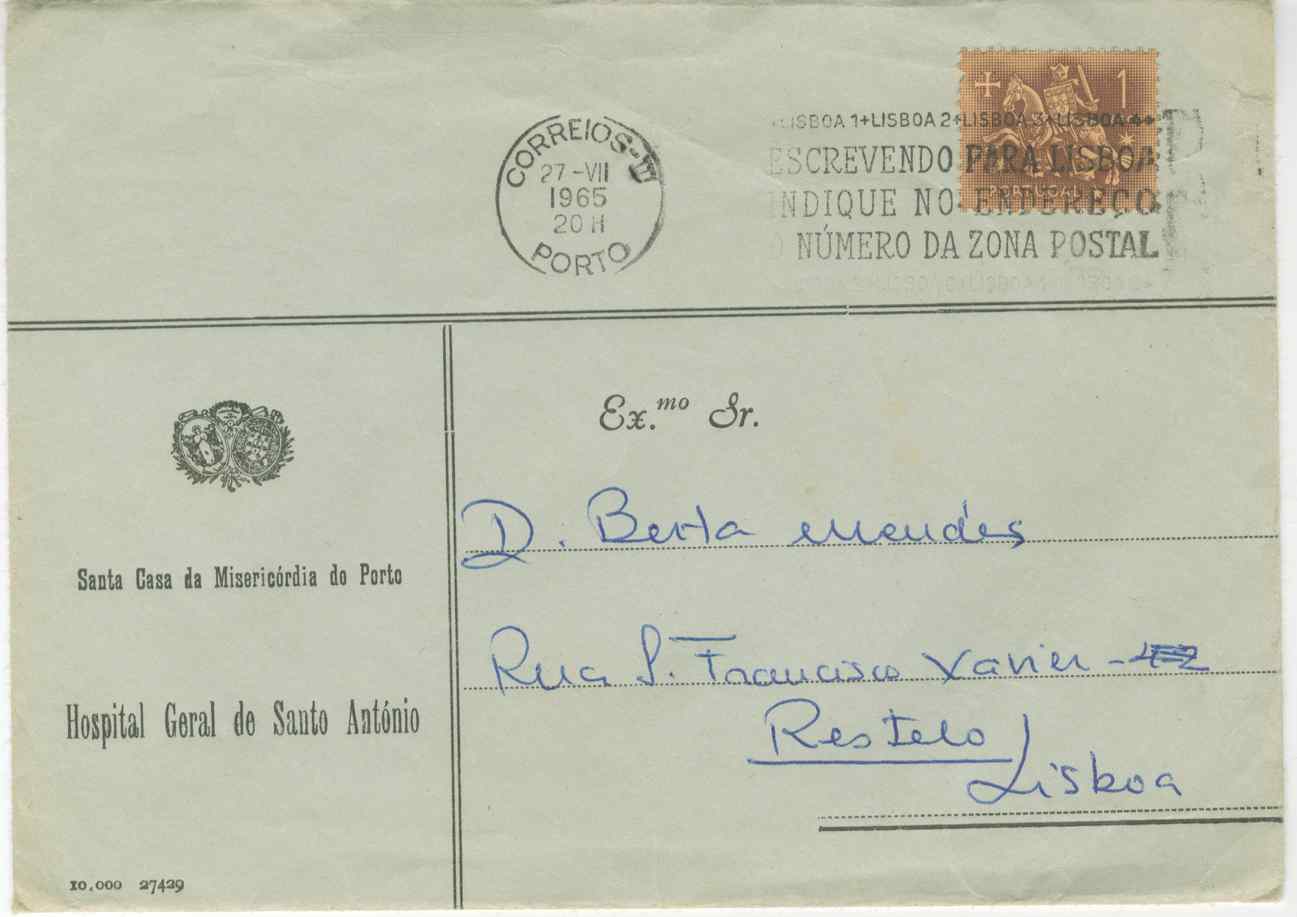 LISBOA 1+LISBOA 2+LISBOA 3+LISBOA 4+
ESCREVENDO PARA LISBOA
INDIQUE NO ENDEREÇO
O NÚMERO DA ZONA POSTAL
1
PORTUGAL
CORREIOS
27-VII
1965
20 H
PORTO
Ex.mo Sr.
D. Berta Mendes
Rua S. Francisco Xavier -
Restelo
Lisboa
Santa Casa da Misericórdia do Porto
Hospital Geral de Santo António
10.000 27429